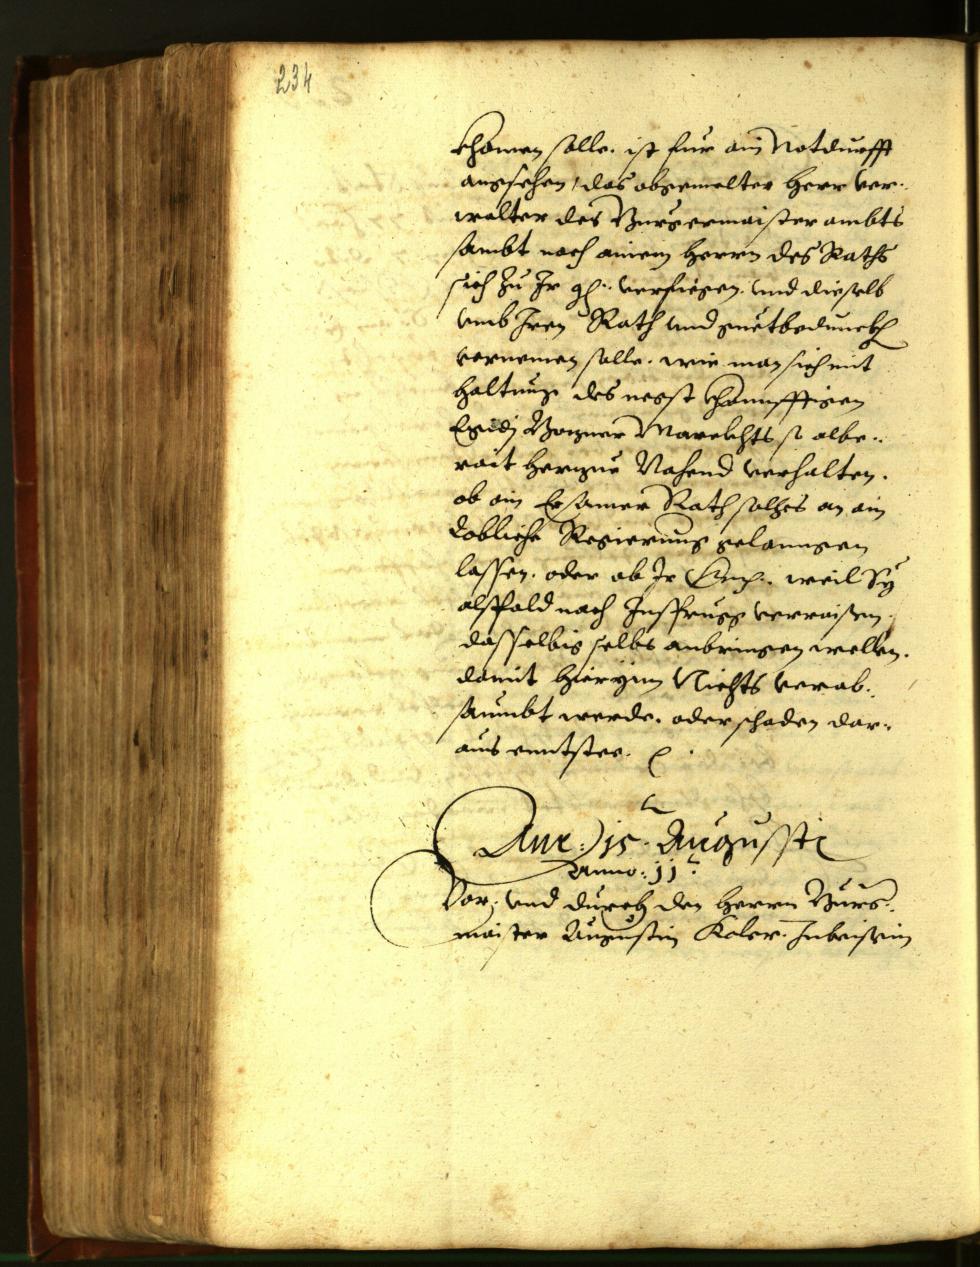 234
khomen solle. ist fur ain Notdurfft
angesehen, das obgemelter herr Ver-
walter des Burgermaister ambts
sambt noch ainem herrn des Raths
sich Zu Ir gh. verfüegen. und dieselb
umb Iren Rath und guetbedunckh
vernemen solle. wie man sich mit
haltung des negst khonnfftigen
Egidj Bozner Marckhts so albe-
rait herzue Nahend verhalten.
ob ain Ersamer Rath solhes an ain
Lobliche Regierung gelanngen
lassen. oder ob Ir weil Sy
alspald nach Insprugg verraisen.
dasselbig selbs anbringen wellen.
damit hierynn Nichts verab-
saumbt werde. oder schaden dar-
aus enntstee.
15. Augusti
Anno: 11
Vor: und durch den herrn Burg-
maister Augustin Koler. Inbeisein